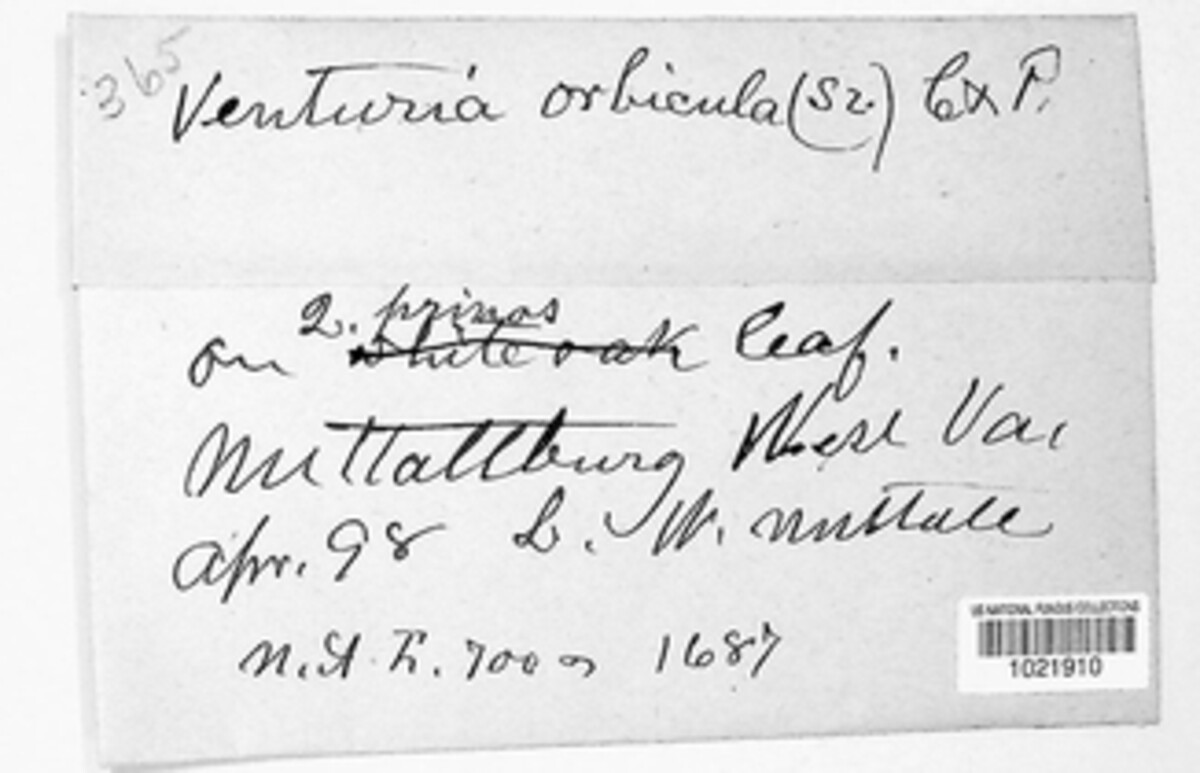 365
Venturia orbicula (Sz.) C & P.
Q. prinos
on white oak leaf.
Nuttallburg West Va,
Apr. 98 L. W. Nuttall
N.A.F. 700 1687
US NATIONAL FUNGUS COLLECTIONS
1021910